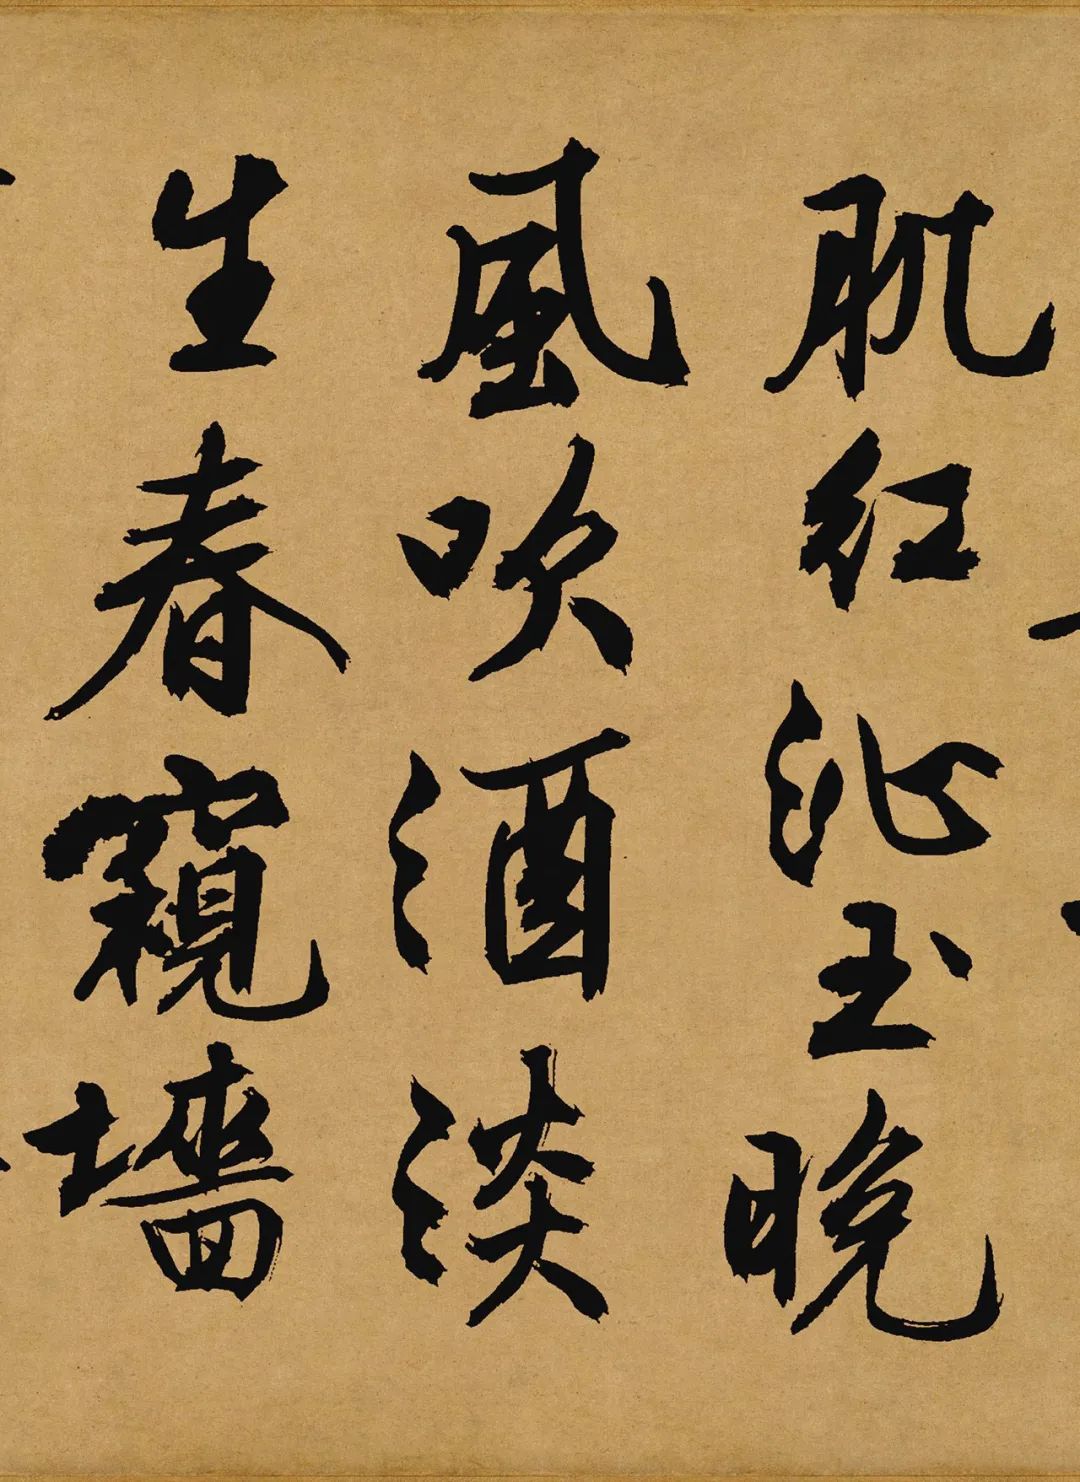 肌红沁玉晚
風吹酒淡
生春窺墻